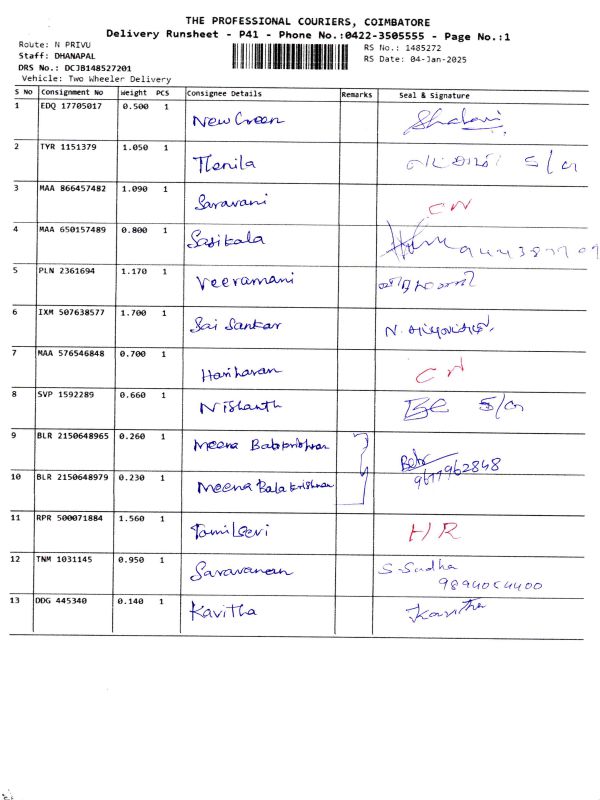 THE PROFESSIONAL COURIERS, COIMBATORE
Delivery Runsheet - P41 - Phone No.:0422-3505555 - Page No.:1
Route: N PRIVU
Staff: DHANAPAL
DRS No.: DCJB148527201
Vehicle: Two Wheeler Delivery
RS No.: 1485272
RS Date: 04-Jan-2025
S No Consignment No Weight PCS Consignee Details Remarks Seal & Signature
1 EDQ 17705017 0.500 1 New Green Shalini
2 TYR 1151379 1.050 1 Thenila S/O
3 MAA 866457482 1.090 1 Saravani CN
4 MAA 650157489 0.800 1 Sasikala
5 PLN 2361694 1.170 1 Veeramani
6 IXM 507638577 1.700 1 Sai Sankar N.
7 MAA 576546848 0.700 1 Hariharan CN
8 SVP 1592289 0.660 1 Nishanth S/O
9 BLR 2150648965 0.260 1 Meena Balakrishnan
10 BLR 2150648979 0.230 1 Meena Balakrishnan 9677962848
11 RPR 500071884 1.560 1 Tamilselvi HR
12 TNM 1031145 0.950 1 Saravanan S-Sudha
13 DDG 445340 0.140 1 Kavitha Kavitha